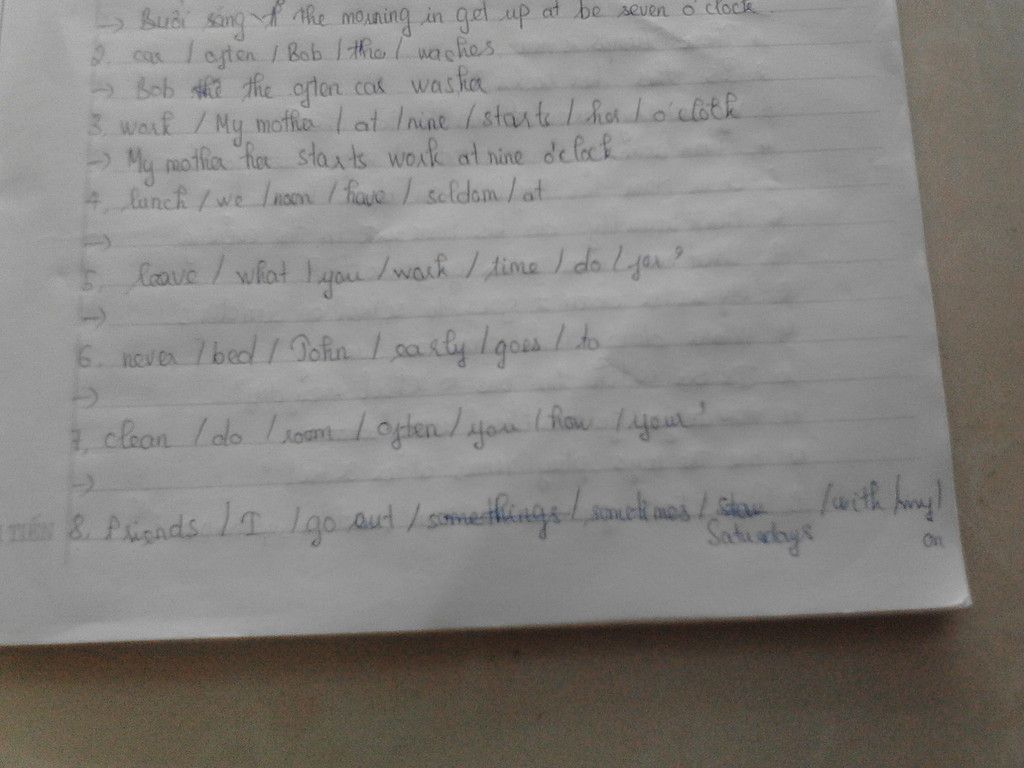 → Buổi sáng I the morning in get up at be seven o'clock
2. car / often / Bob / the / washes
→ Bob the often car washes
3. work / My mother / at / nine / starts / her / o'clock
→ My mother her starts work at nine o'clock
4. lunch / we / noon / have / seldom / at
→
5. leave / what / you / work / time / do / for?
→
6. never / bed / John / early / goes / to
→
7. clean / do / room / often / you / how / your?
→
8. friends / I / go out / somethings / sometimes / / with / my /
Saturdays on